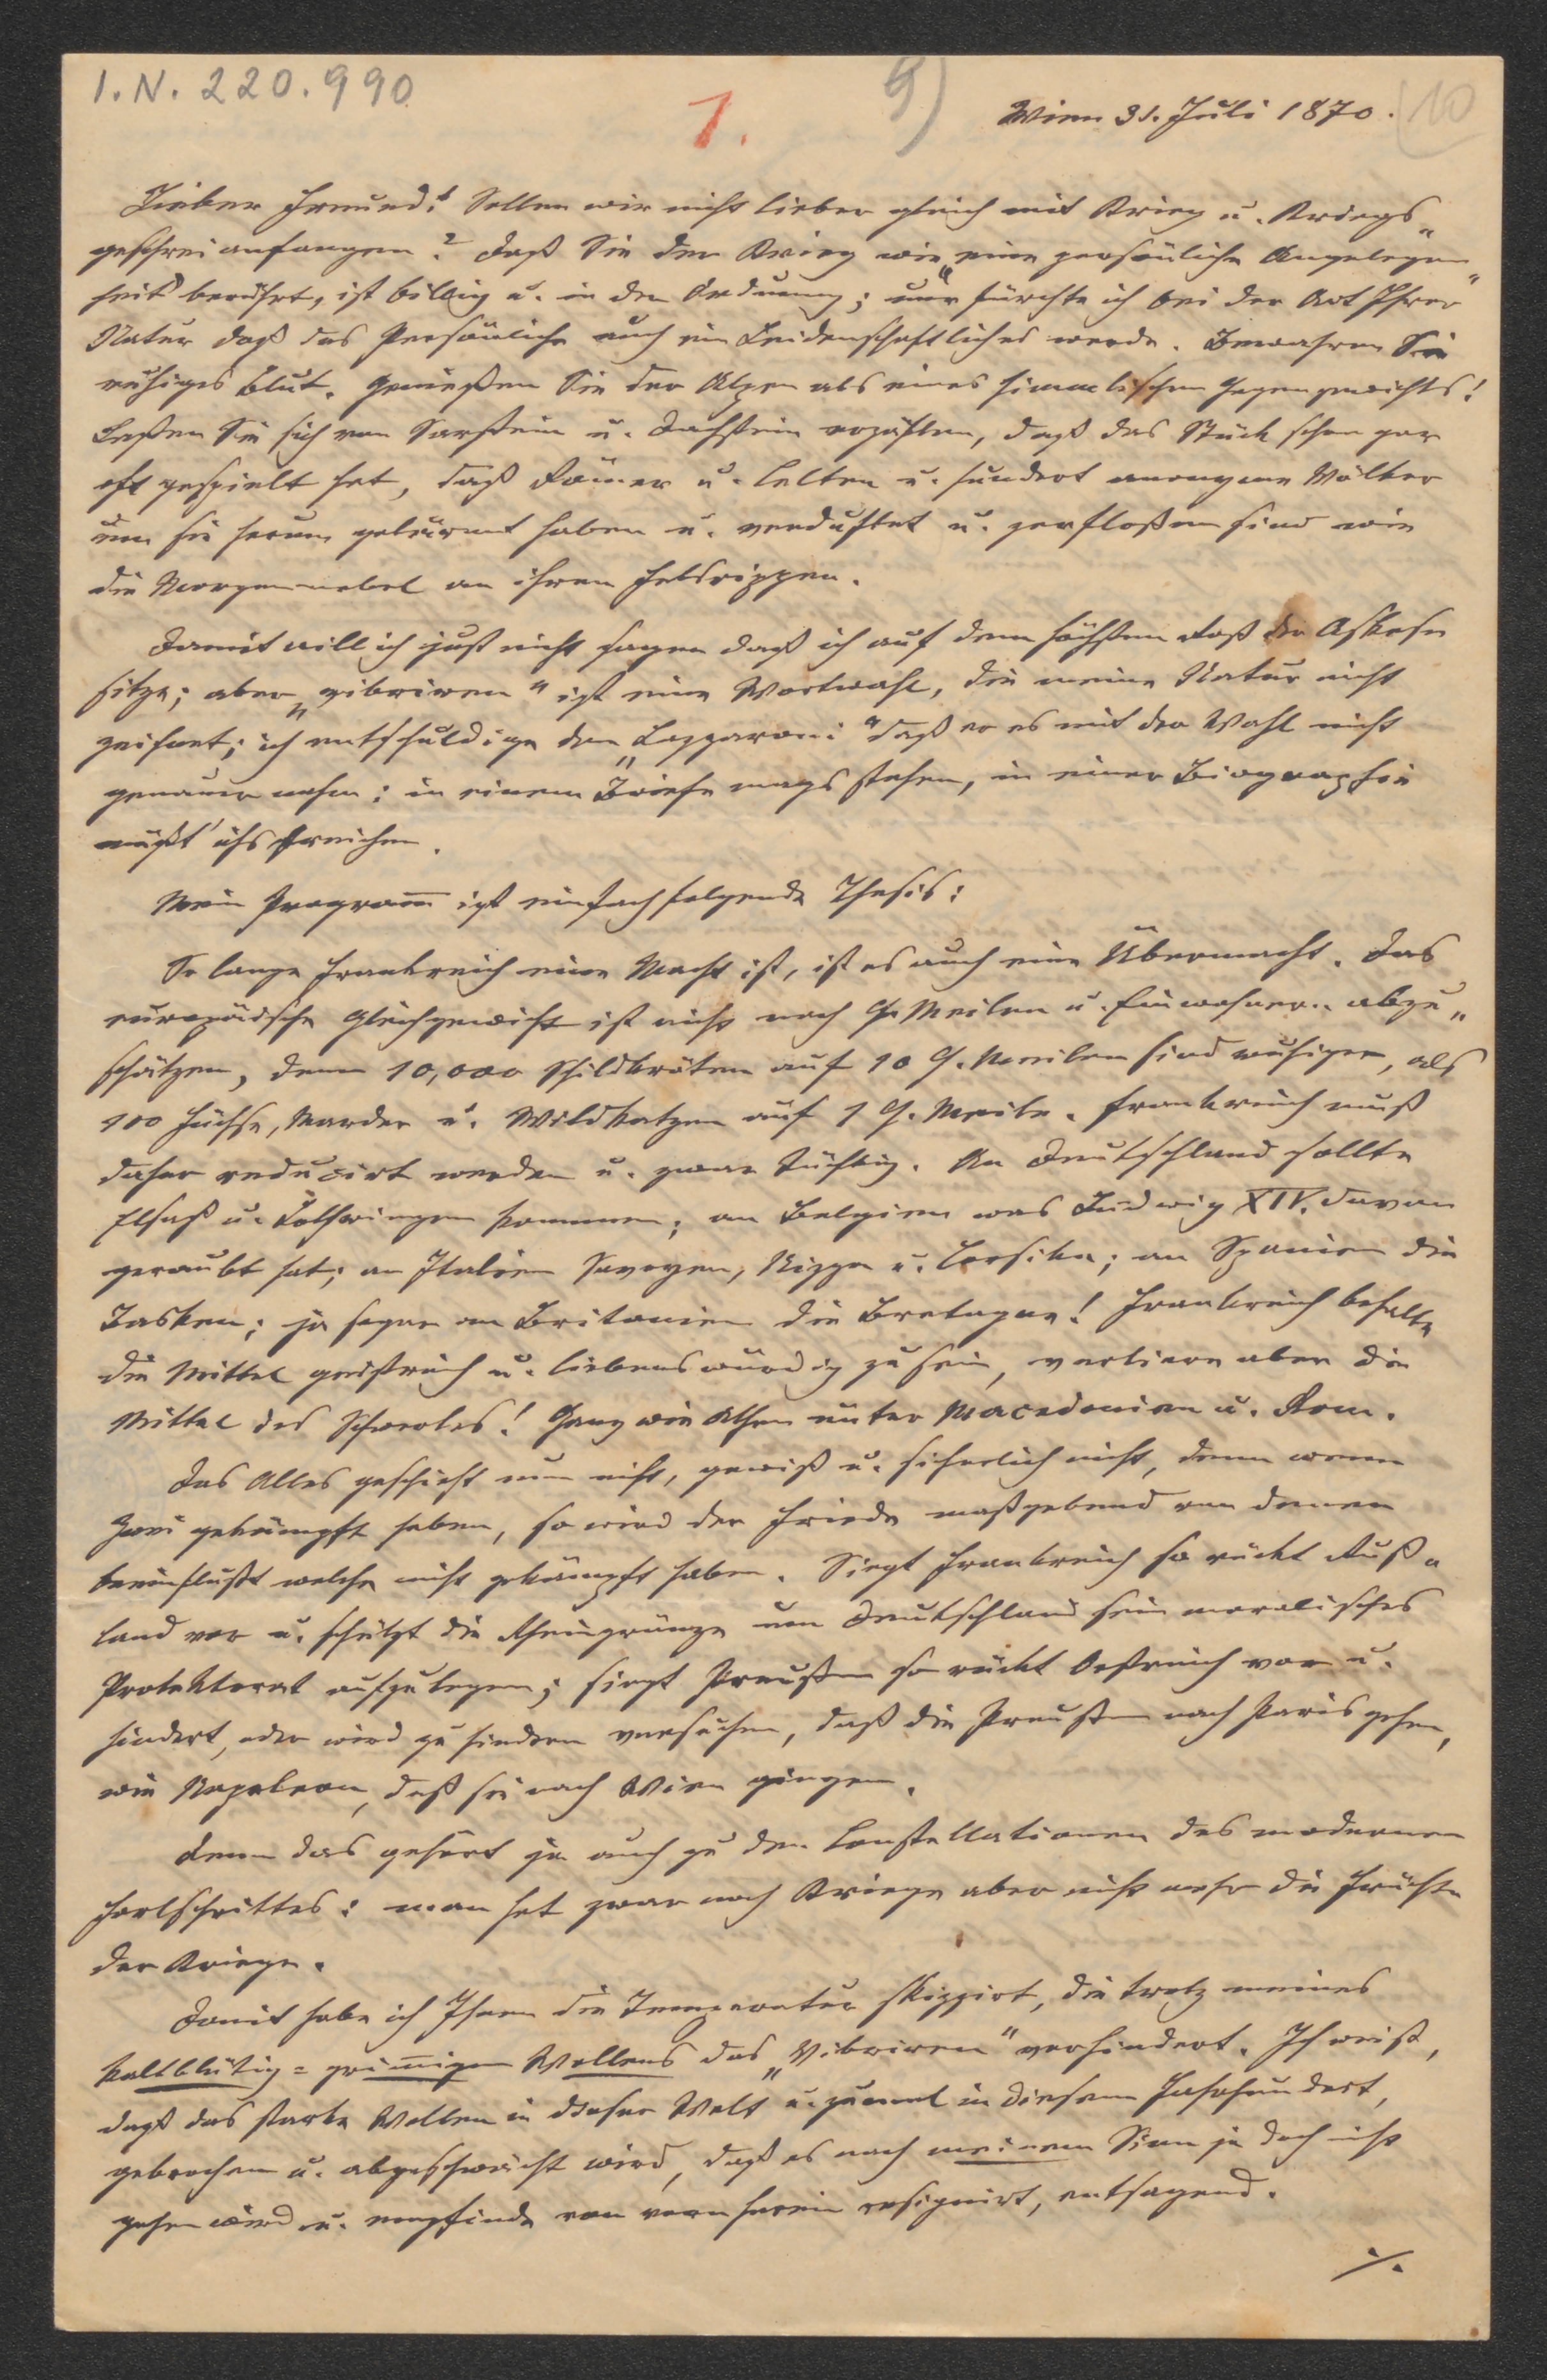 I.N. 220.990
1.
9)
(10
Wien 31. Juli 1870.
Lieber Freund! Sollen wir nicht lieber gleich mit Krieg u. Kriegs„
geschrei anfangen? Daß Sie der Krieg wie „eine persönliche Angelegen„
heit“ berührt, ist billig u. in der Ordnung; nur fürchte ich bei der Art Ihrer
Natur daß das Persönliche auch ein Leidenschaftliches werde. Bewahren Sie
ruhiges Blut. Genießen Sie der Alpen als eines himmlischen Gegengewichts!
Laßen Sie sich von Sarstein u. Dachstein erzählen, daß das Stück schon gar
oft gespielt hat, daß Römer u. Celten u. hundert anonyme Völker
um sie herum gelärmt haben u. verduftet u. zerfloßen sind wie
die Morgennebel an ihren Felsrippen.
Damit will ich just nicht sagen daß ich auf dem höchsten Roß der Askese
sitze; aber „vibriren“ ist eine Wortwahl, die meine Natur nicht
zeichnet; ich entschuldige den „Lazzaroni“ daß er es mit der Wahl nicht
genauer nahm: in einem Briefe mags stehen, in einer Biographie
müßt' ichs streichen.
Mein Program̅ ist einfach folgende Thesis:
So lange Frankreich eine Macht ist, ist es auch eine Übermacht. Das
europäische Gleichgewicht ist nicht nach G. Meilen u. Einwohner.. abzu„
schätzen, denn 10,000 Schildkröten auf 10 G. Meilen sind ruhiger, als
100 Füchse, Marder u. Wildkatzen auf 1 G. Meile. Frankreich muß
daher reducirt werden u. zwar tüchtig. An Deutschland sollte
Elsaß u. Lothringen kommen; an Belgien was Ludwig XIV. davon
geraubt hat; an Italien Savoyen, Nizza u. Corsika; an Spanien die
Basken; ja sogar an Britanien die Bretagne! Frankreich behalte
die Mittel geistreich u. liebenswürdig zu sein, verliere aber die
Mittel des Schwertes! Ganz wie Athen unter Macedonien u. Rom.
Das Alles geschieht nun nicht, gewiß u. sicherlich nicht, denn wenn
Zwei gekämpft haben, so wird der Friede maßgebend von denen
beeinflußt welche nicht gekämpft haben. Siegt Frankreich so rückt Ruß„
land vor u. schützt die Rheingränze um Deutschland sein moralisches
Protektorat aufzulegen; siegt Preußen so rückt Oestreich vor u.
hindert, oder wird zu hindern versuchen, daß die Preußen nach Paris gehen,
wie Napoleon, daß sie nach Wien gingen.
Denn das gehört ja auch zu den Constellationen des modernen
Fortschrittes: man hat zwar noch Kriege aber nicht mehr die Früchte
der Kriege.
Damit habe ich Ihnen die Temperatur skizzirt, die trotz meines
kaltblütig=grim̅igen Wollens das „Vibriren“ verhindert. Ich weiß,
daß das starke Wollen in dieser Welt u. zumal in diesem Jahrhundert,
gebrochen u. abgeschwächt wird, daß es nach meinem Sinn ja doch nicht
gehen wird u. empfinde von vorn herein resignirt, entsagend.
./.